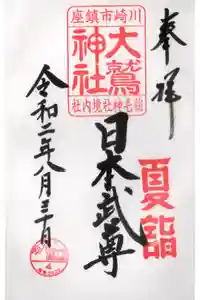 奉拝
川崎市鎮座
大鷲神社
稲毛神社境内社
夏詣
日本武尊
令和二年八月三十日